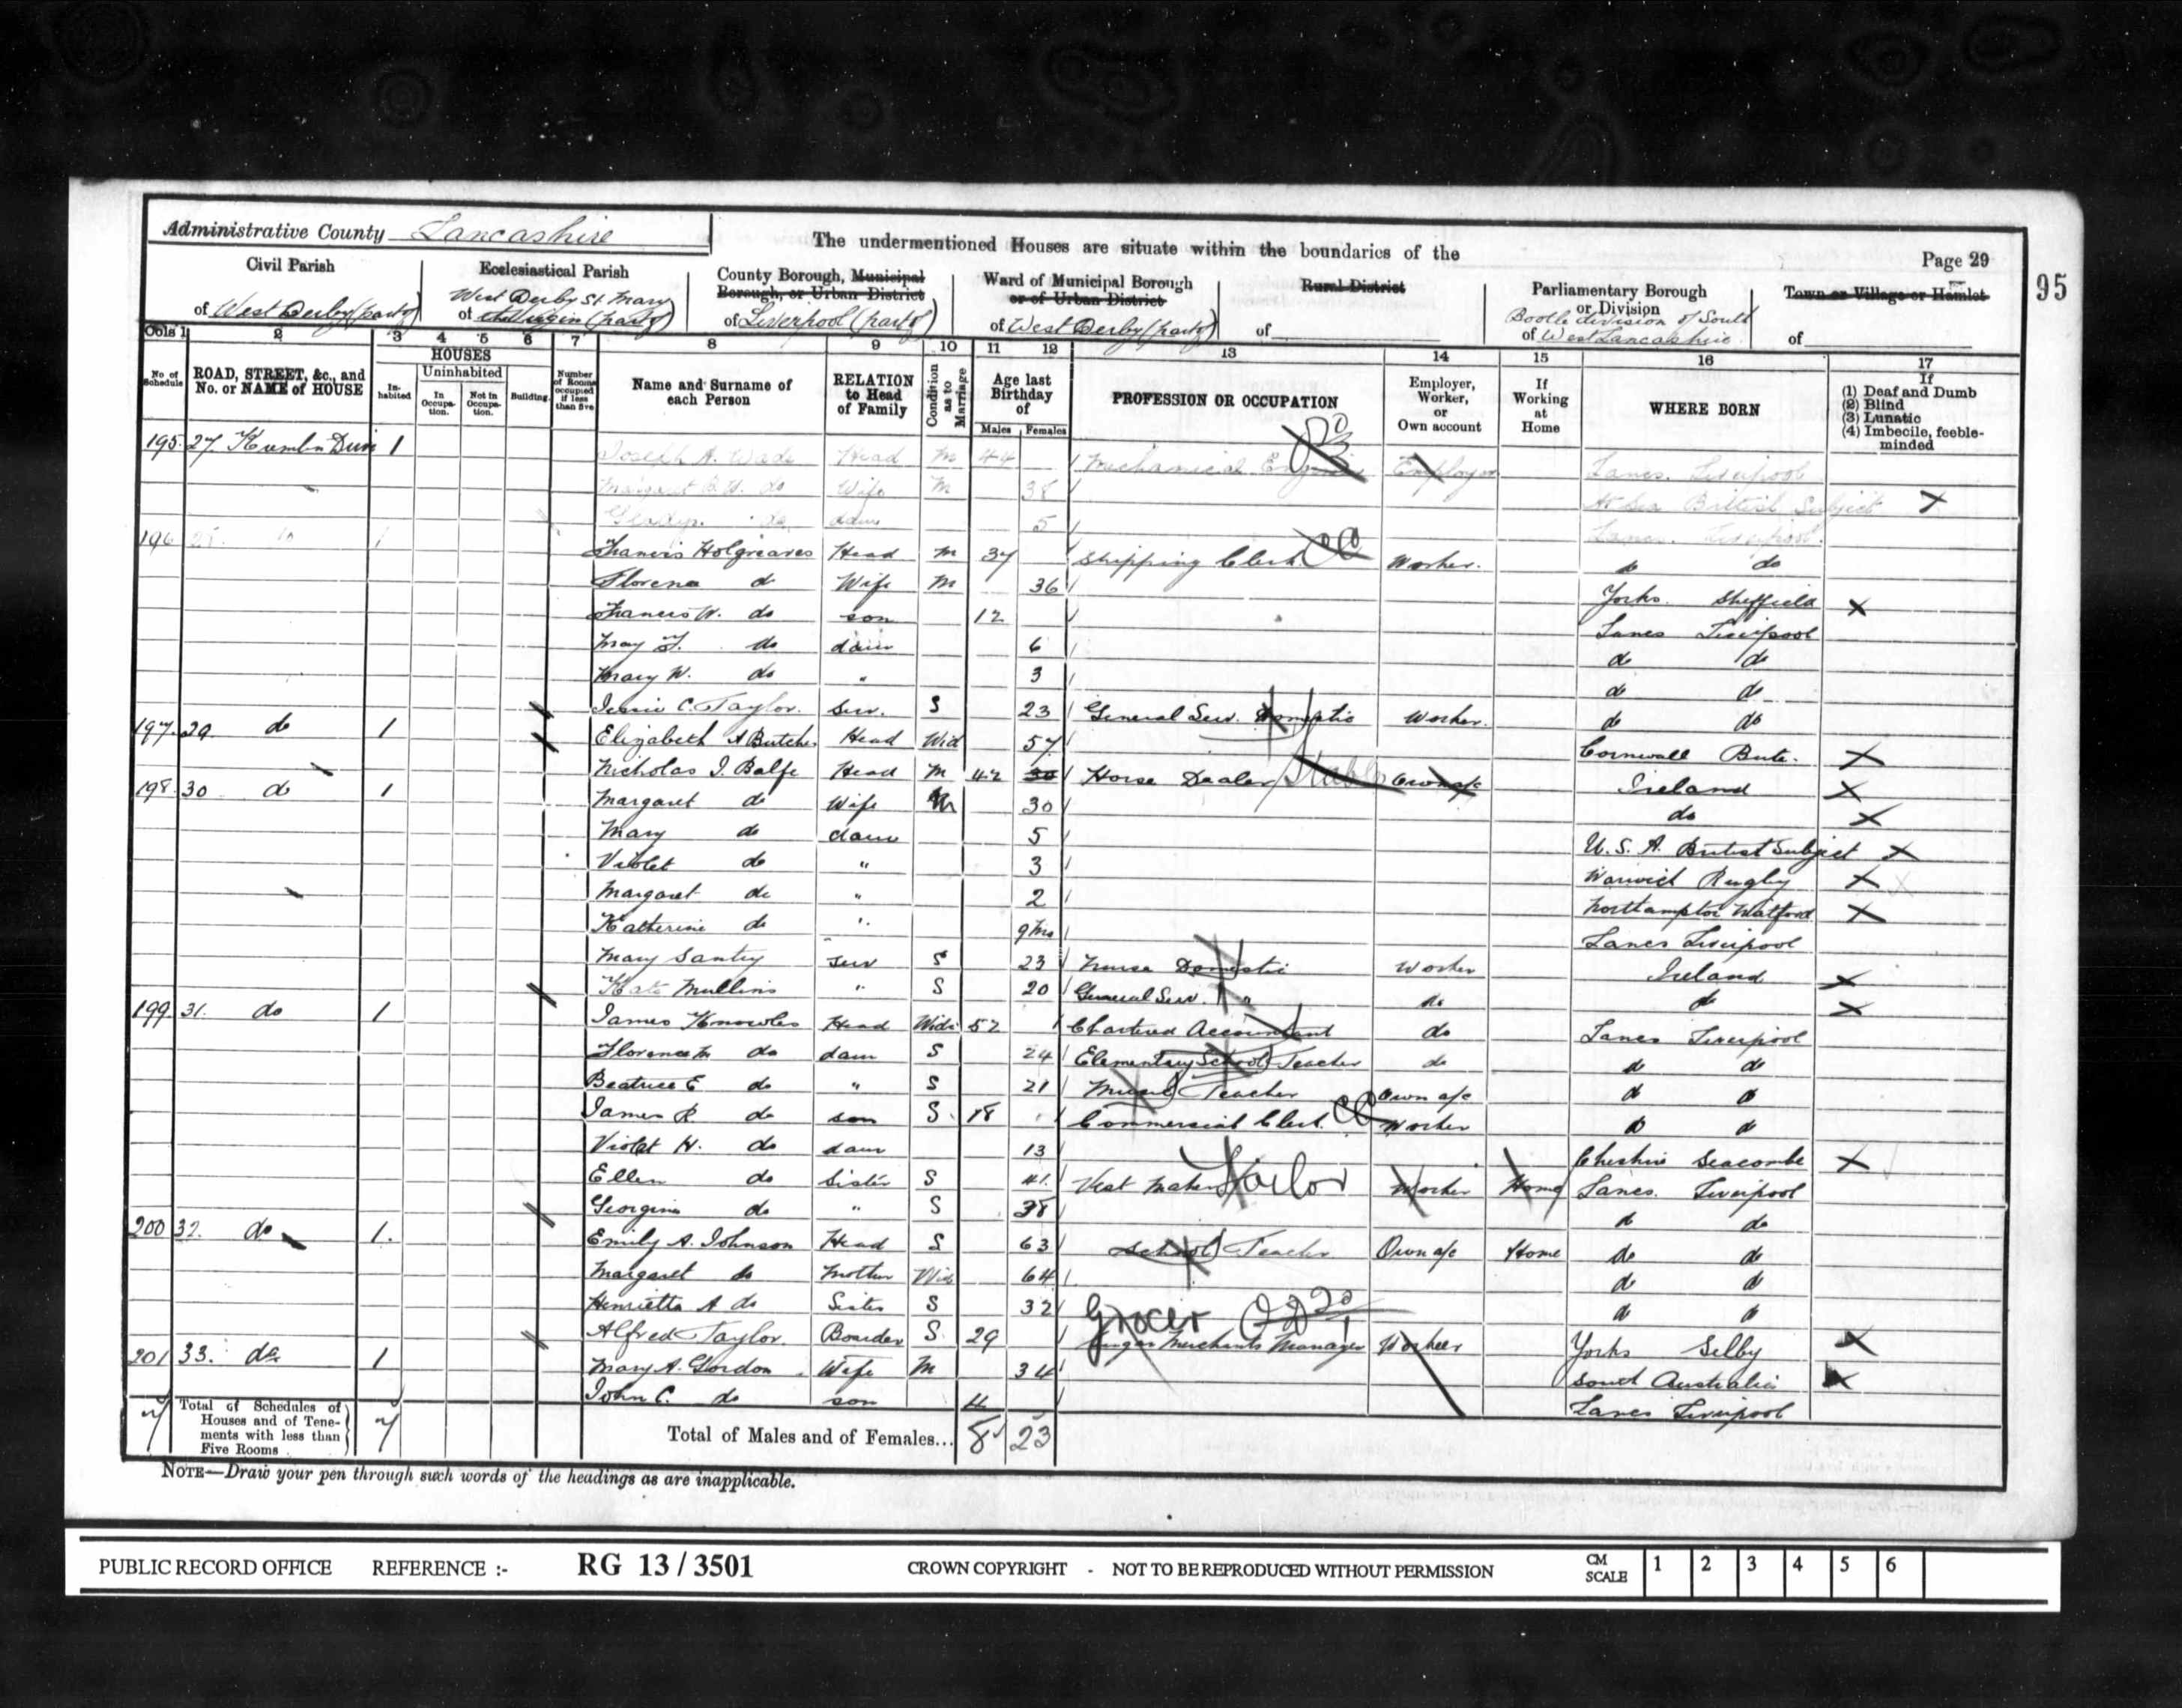 Administrative County Lancashire
The undermentioned Houses are situate within the boundaries of the
Page 29
95
Civil Parish of West Derby (part of)
Ecclesiastical Parish of West Derby St Mary the Virgin (part of)
County Borough, Municipal Borough, or Urban District of Liverpool (part of)
Ward of Municipal Borough or of Urban District of West Derby (part of)
Rural District of
Parliamentary Borough or Division of Bootle division of South West Lancashire
Town or Village or Hamlet of
Cols 1 2 3 4 5 6 7 8 9 10 11 12 13 14 15 16 17
No of Schedule
ROAD, STREET, &c., and No. or NAME of HOUSE
HOUSES
In-habited
Uninhabited
In Occupa-tion.
Not in Occupa-tion.
Building
Number of Rooms occupied if less than five
Name and Surname of each Person
RELATION to Head of Family
Condition as to Marriage
Age last Birthday of
Males Females
PROFESSION OR OCCUPATION
Employer, Worker, or Own account
If Working at Home
WHERE BORN
If
(1) Deaf and Dumb
(2) Blind
(3) Lunatic
(4) Imbecile, feeble-minded
195 27 1 Joseph A. Wade Head M 44 Mechanical Employer Lancs. Liverpool
Margaret do Wife M 38 At Sea British Subject
Gladys do daur 5 Lancs. Liverpool
196 1 Francis Holgreaves Head M 37 Shipping Clerk Worker. do do
Florence do Wife M 36 Yorks. Sheffield
Francis W. do son 12 Lancs Liverpool
May F. do daur 6 do do
Mary W. do " 3 do do
Jessie C. Taylor. Serv. S 23 General Serv. Domestic Worker. do do
197 29 do 1 Elizabeth A Butcher Head Wid 57 Cornwall Bude.
198 30 do 1 Nicholas J. Balfe Head M 42 30 Horse Dealer / Stable Own a/c Ireland
Margaret do Wife M 30 do
Mary do daur 5 U. S. A. British Subject
Violet do " 3 Warwick Rugby
Margaret do " 2 Northampton Watford
Katherine do " 9 Mo Lancs Liverpool
Mary Santry Serv S 23 Nurse Domestic Worker Ireland
Kate Mullins " S 20 General Serv. " do do
199 31. do 1 James Knowles Head Widr 52 Chartered Accountant do Lancs Liverpool
Florence M do daur S 24 Elementary School Teacher do do do
Beatrice E do " S 21 Music Teacher Own a/c do do
James R. do son S 18 Commercial Clerk. Worker do do
Violet H. do daur 13 Cheshire Seacombe
Ellen do Sister S 41 Vest Maker Tailor Worker Home Lancs. Liverpool
Georgina do " S 38 do do
200 32. do 1. Emily A. Johnson Head S 63 School Teacher Own a/c Home do do
Margaret do Mother Wid 64 do do
Henrietta A do Sister S 32 do do
Grocer
Alfred Taylor. Boarder S 29 Merchants Manager Worker Yorks Selby
201 33. do 1 Mary A. Gordon Wife M 34 South Australia
John C. do son 4 Lancs Liverpool
7 Total of Schedules of Houses and of Tene-ments with less than Five Rooms 7
Total of Males and of Females... 8 23
NOTE—Draw your pen through such words of the headings as are inapplicable.
PUBLIC RECORD OFFICE REFERENCE :- RG 13 / 3501 CROWN COPYRIGHT - NOT TO BE REPRODUCED WITHOUT PERMISSION CM SCALE 1 2 3 4 5 6